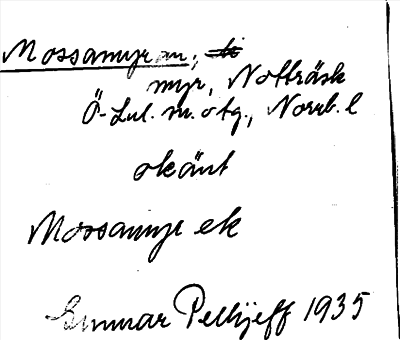 Mossamyran,
myr, Notträsk
Ö-Lul. m. otg., Norrb. l
okänt
Mossamyr ek
Gunnar Pellijeff 1935